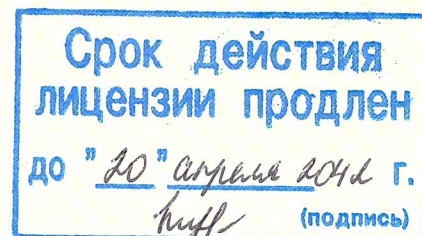 Срок действия
лицензии продлен
до "20" апреля 2042 г.
(подпись)